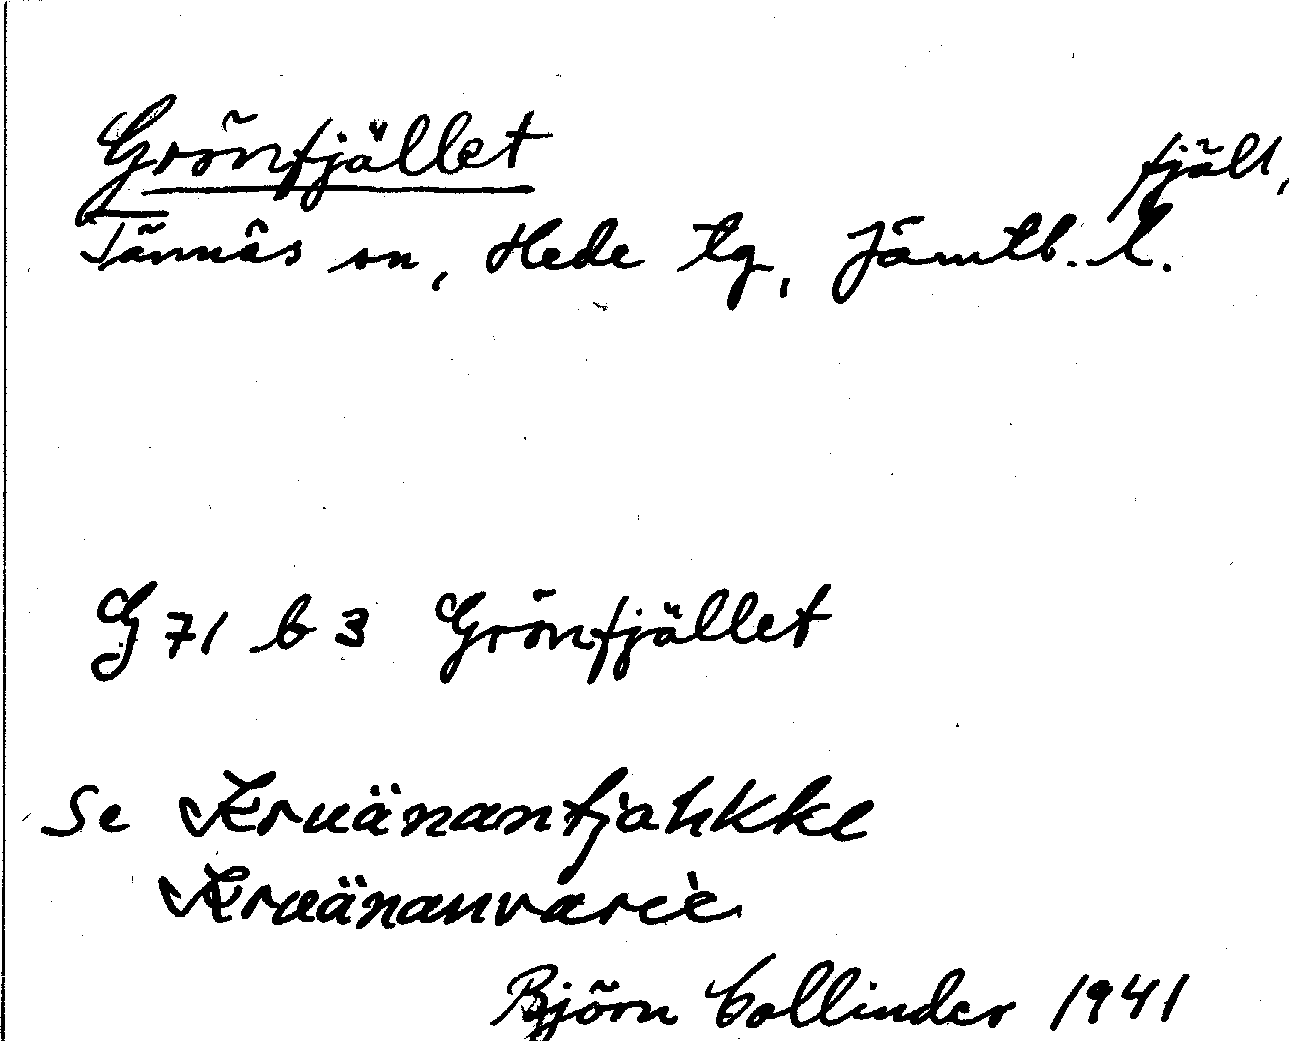 Grönfjället fjäll,
Tännäs sn, Hede tg, Jämtl. l.
G 71 b 3 Grönfjället
Se Kruänantjahkke
Kruänanvarie
Björn Collinder 1941